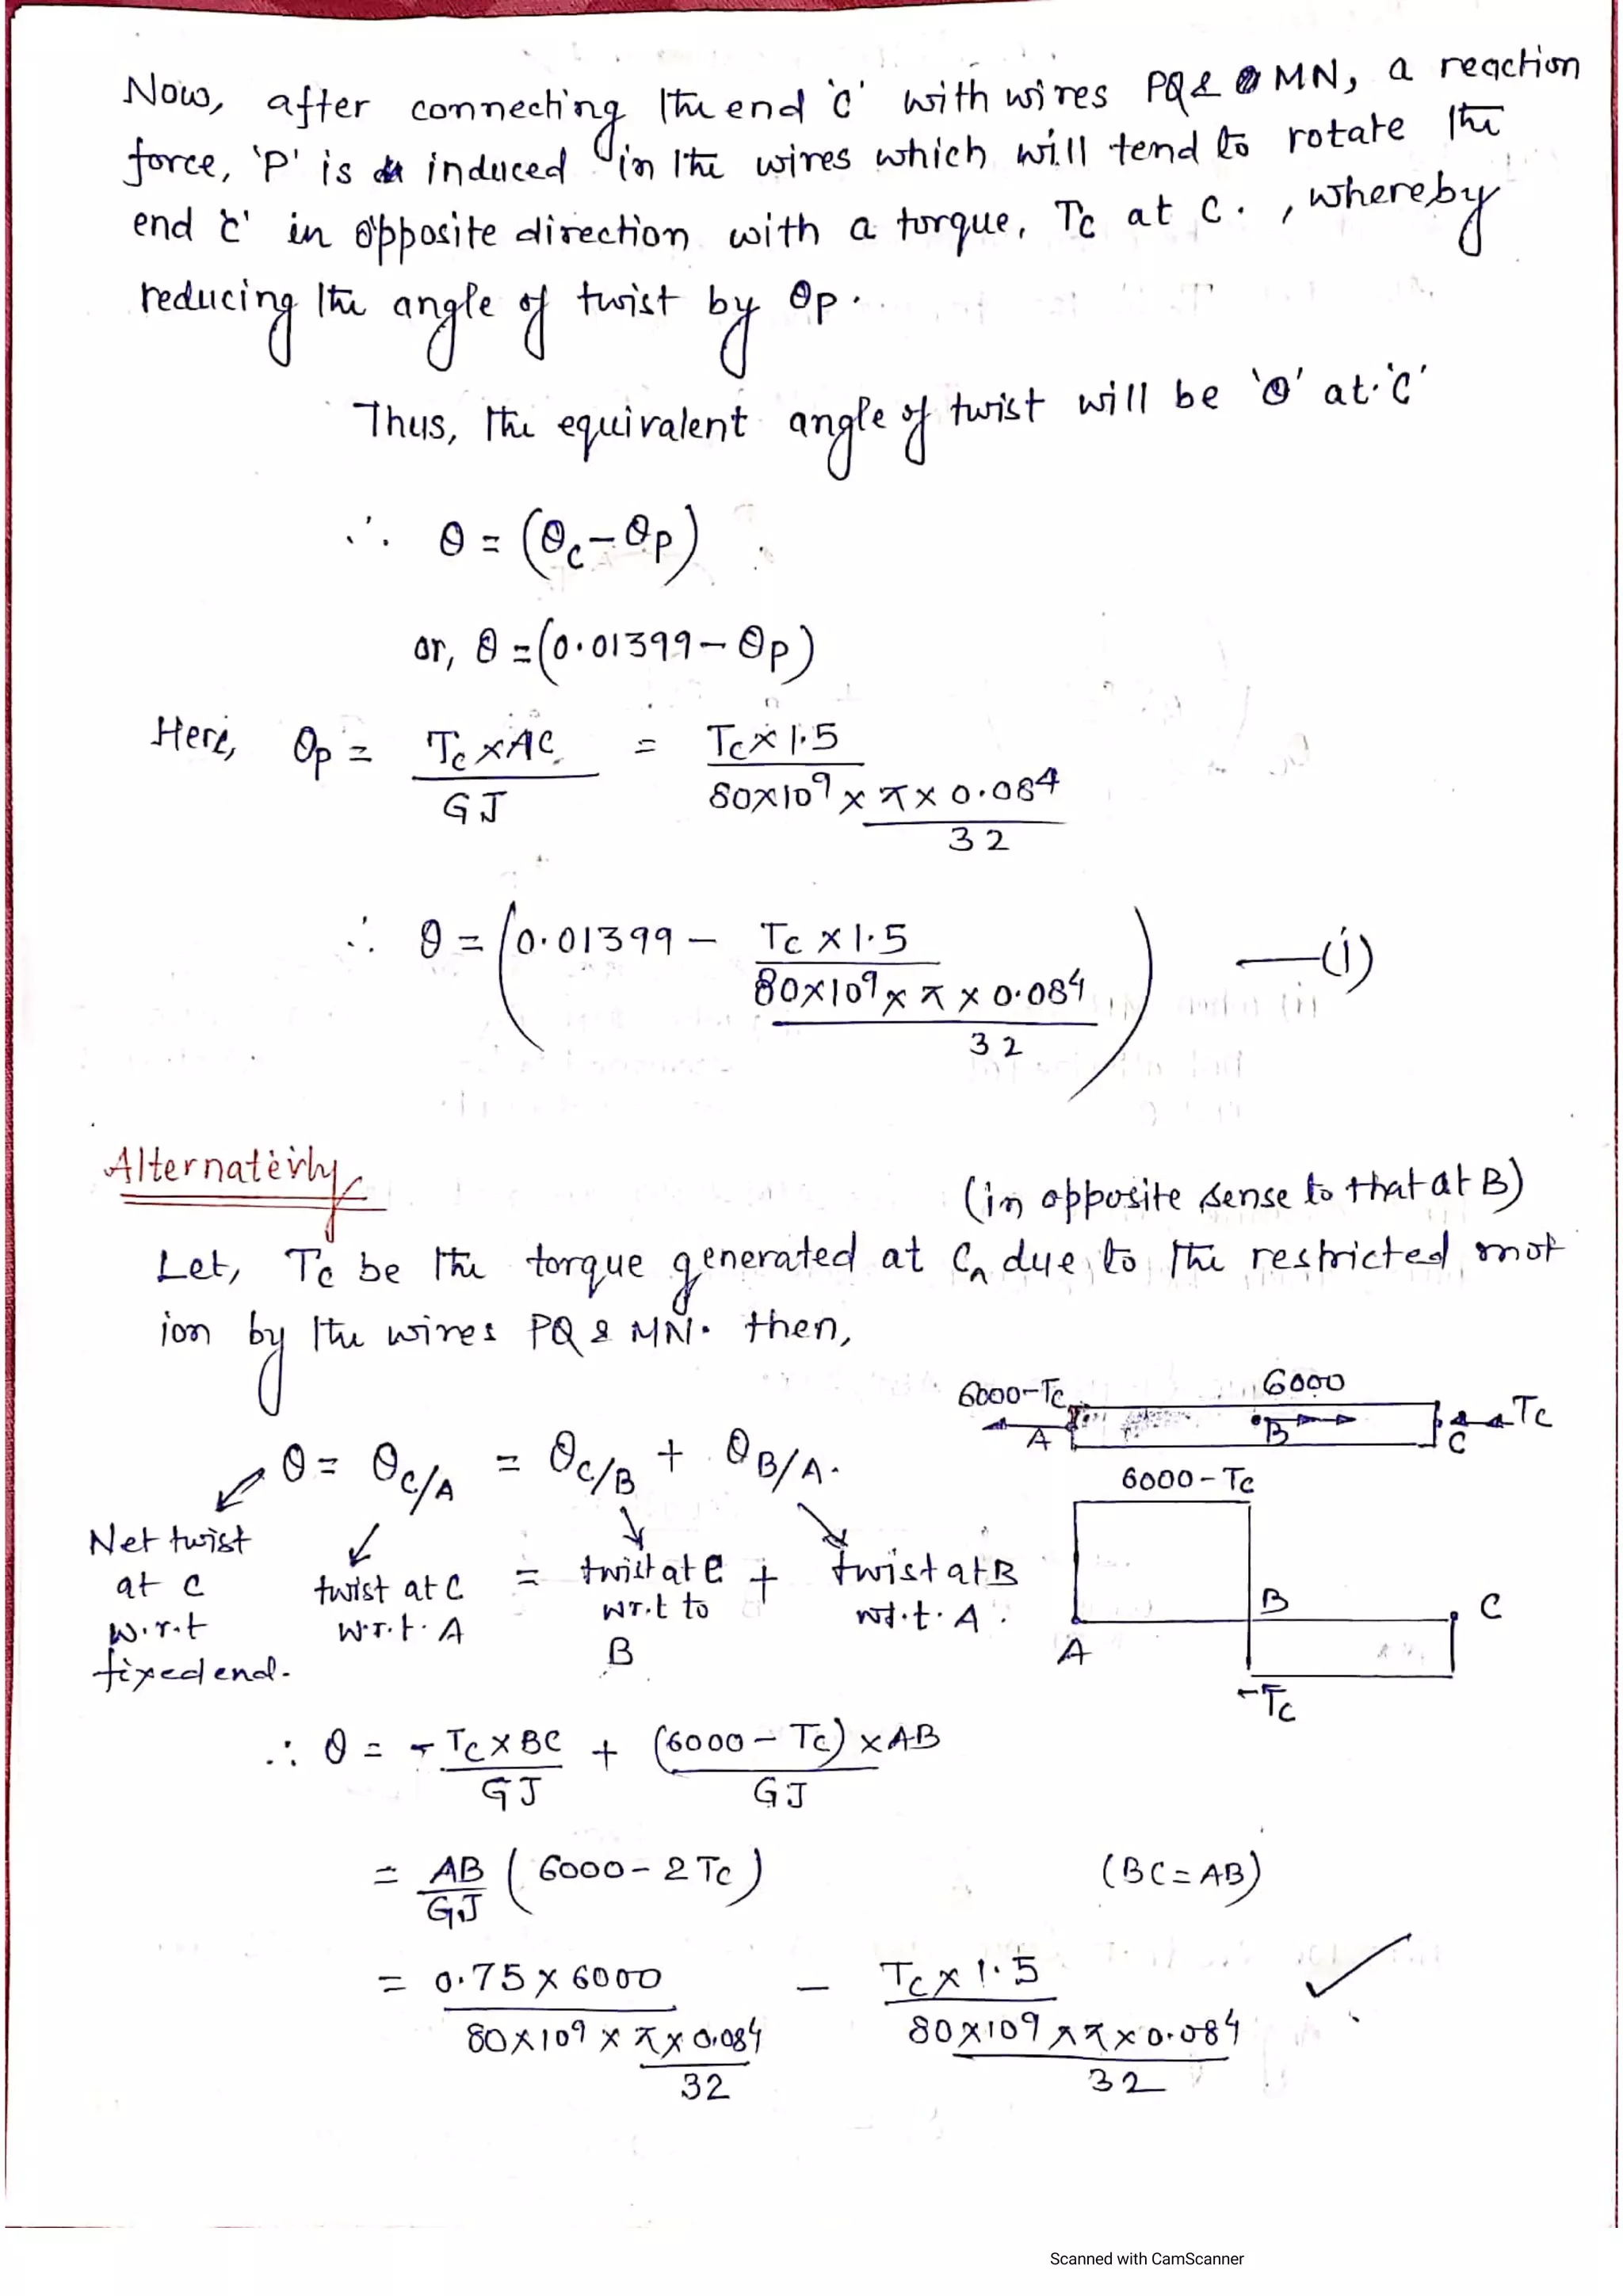 Now, after connecting the end 'C' with wires PQ & MN, a reaction
force, 'P' is induced in the wires which will tend to rotate the
end 'c' in opposite direction with a torque, Tc at C. , whereby
reducing the angle of twist by θp.
Thus, the equivalent angle of twist will be 'θ' at 'C'
∴ θ = (θc - θp)
or, θ = (0.01399 - θp)
Here, θp = Tc × AC / GJ = Tc × 1.5 / (80×10⁹ × π × 0.08⁴ / 32)
∴ θ = (0.01399 - Tc × 1.5 / (80×10⁹ × π × 0.08⁴ / 32)) —(i)
Alternatively,
(in opposite sense to that at B)
Let, Tc be the torque generated at C^ due to the restricted mot
ion by the wires PQ & MN. then,
6000-Tc A 6000 B C Tc
θ = θC/A = θC/B + θB/A.
6000 - Tc
Net twist at C w.r.t fixed end.
twist at C w.r.t. A = twist at C wr.t to B + twist at B wr.t. A.
A B C
-Tc
∴ θ = - Tc × BC / GJ + (6000 - Tc) × AB / GJ
= AB / GJ (6000 - 2Tc) (BC = AB)
= 0.75 × 6000 / (80×10⁹ × π × 0.08⁴ / 32) - Tc × 1.5 / (80×10⁹ × π × 0.08⁴ / 32) ✓
Scanned with CamScanner